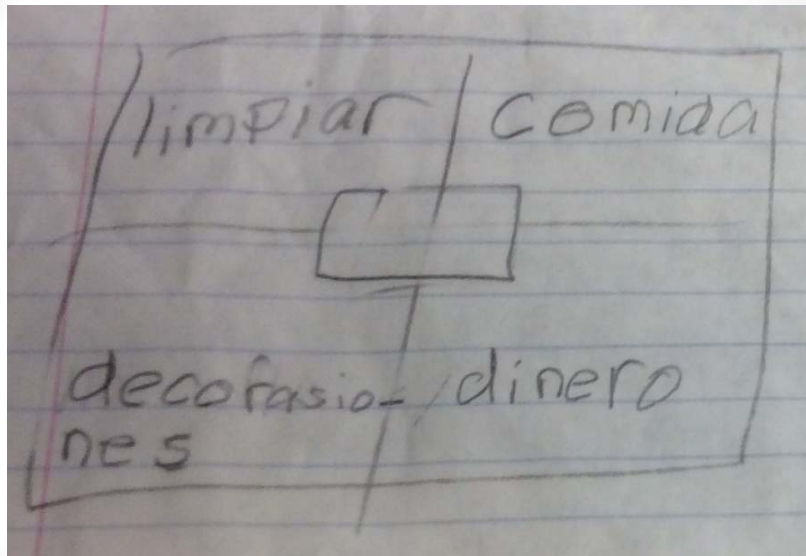 limpiar comida
decorasio- dinero
nes